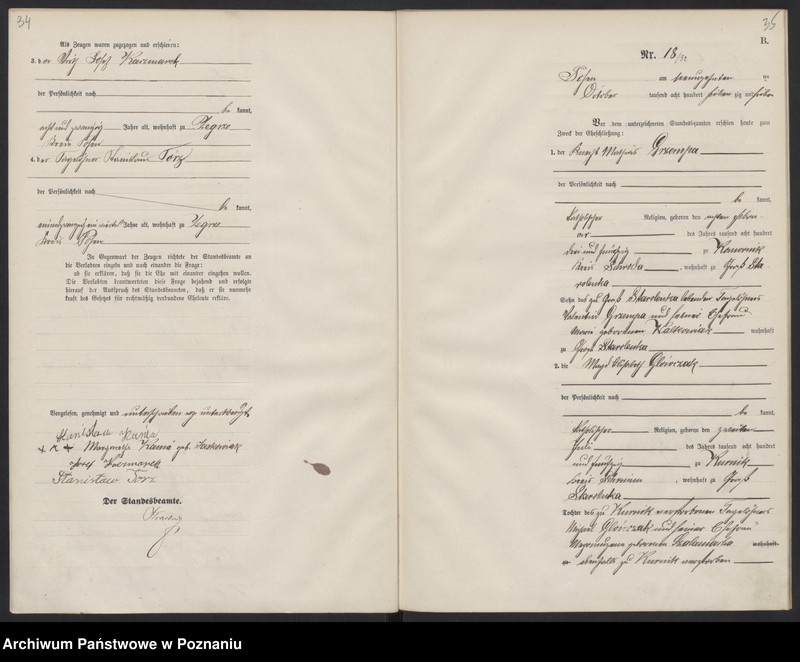 34
Als Zeugen waren zugezogen und erschienen:
3. der Josef Kaczmarek
der Persönlichkeit nach
be kannt,
acht und zwanzig Jahre alt, wohnhaft zu Zegrze
Kreis Posen
4. der Tagelöhner Stanislaus Torz
der Persönlichkeit nach
be kannt,
Jahre alt, wohnhaft zu Zegrze
Kreis Posen
In Gegenwart der Zeugen richtete der Standesbeamte an
die Verlobten einzeln und nach einander die Frage:
ob sie erklären, daß sie die Ehe mit einander eingehen wollen.
Die Verlobten beantworteten diese Frage bejahend und erfolgte
hierauf der Ausspruch des Standesbeamten, daß er sie nunmehr
kraft des Gesetzes für rechtmäßig verbundene Eheleute erkläre.
Vorgelesen, genehmigt und
Stanisław Kania
+++ Kania geb.
Josef Kaczmarek
Stanisław Torz
Der Standesbeamte.
35
B.
Nr. 18
Posen am neunzehnten
October tausend acht hundert sieben zig und sieben
Vor dem unterzeichneten Standesbeamten erschien heute zum
Zweck der Eheschließung:
1. der Knecht Mathias Grzempa
der Persönlichkeit nach
be kannt,
katholischer Religion, geboren den
des Jahres tausend acht hundert
drei und fünfzig zu
Kreis , wohnhaft zu Groß Sta
rolenka
Sohn des zu Groß Starolenka lebenden Tagelöhners
Valentin Grzempa und seiner Ehefrau
Maria geborenen wohnhaft
zu Groß Starolenka
2. die Magd Elisabeth Glowczak
der Persönlichkeit nach
be kannt,
katholischer Religion, geboren den zweiten
Juli des Jahres tausend acht hundert
und fünfzig zu Kurnik
Kreis Schrimm, wohnhaft zu Groß
Starolenka
Tochter des zu Kurnik verstorbenen Tagelöhners
Michael Glowczak und seiner Ehefrau
geborenen wohnhaft
ebenfalls zu Kurnik verstorben
Archiwum Państwowe w Poznaniu